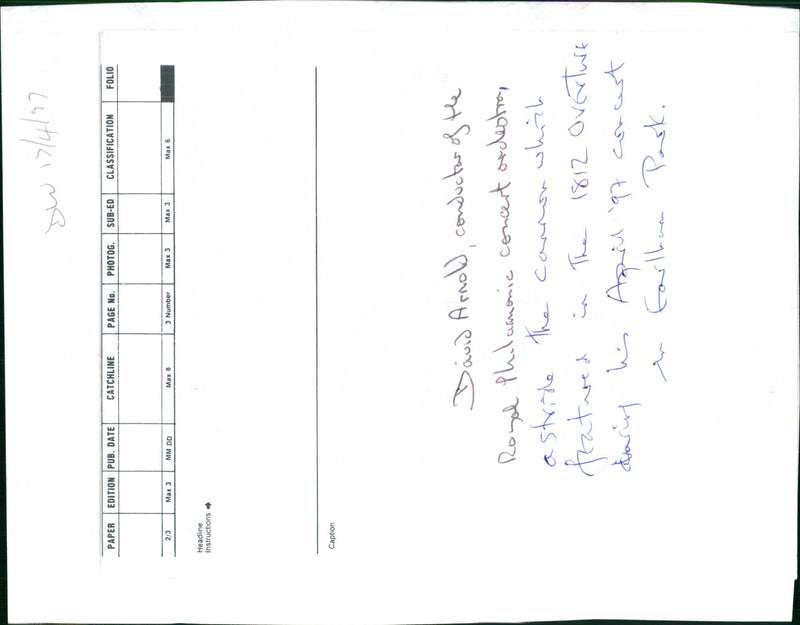 DW 17/4/97
PAPER EDITION PUB. DATE CATCHLINE PAGE No. PHOTOG. SUB-ED CLASSIFICATION FOLIO
2/3 Max 3 MM DD Max 8 3 Number Max 3 Max 3 Max 6
Headline
Instructions →
Caption
David Arnold, conductor of the
Royal Philarmonic concert orchestra,
astride the cannon which
featured in The 1812 OVERTURE
during his April '97 concert
in Earlham Park.